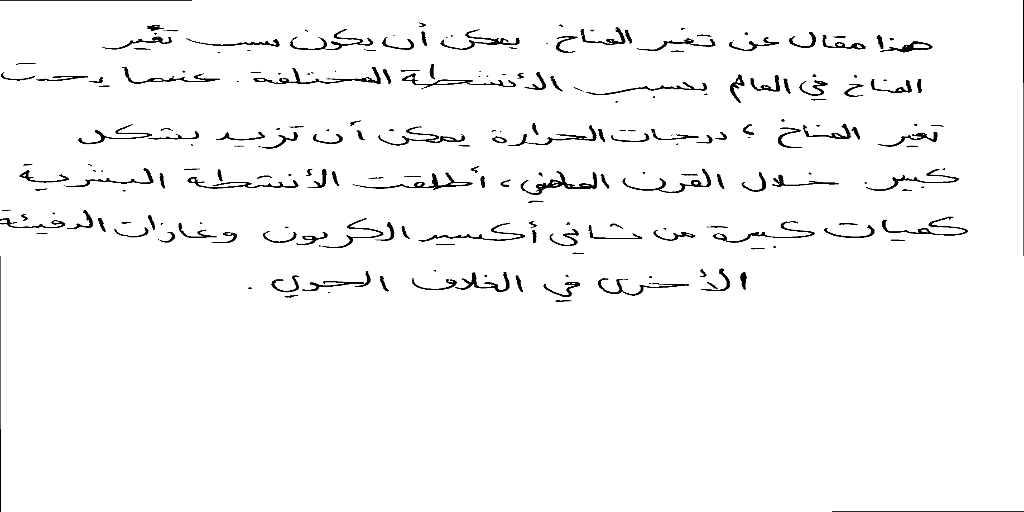 هذا مقال عن تغير المناخ. يمكن أن يكون سبب تغّير
المناخ في العالم بسبب الأنشطة المختلفة. عندما يحدث
تغير المناخ، درجات الحرارة يمكن أن تزيد بشكل
كبير خلال القرن الماضي، أطلقت الأنشطة البشرية
كميات كبيرة من ثاني أكسيد الكربون وغازات الدفيئة
الأخرى في الغلاف الجوي.